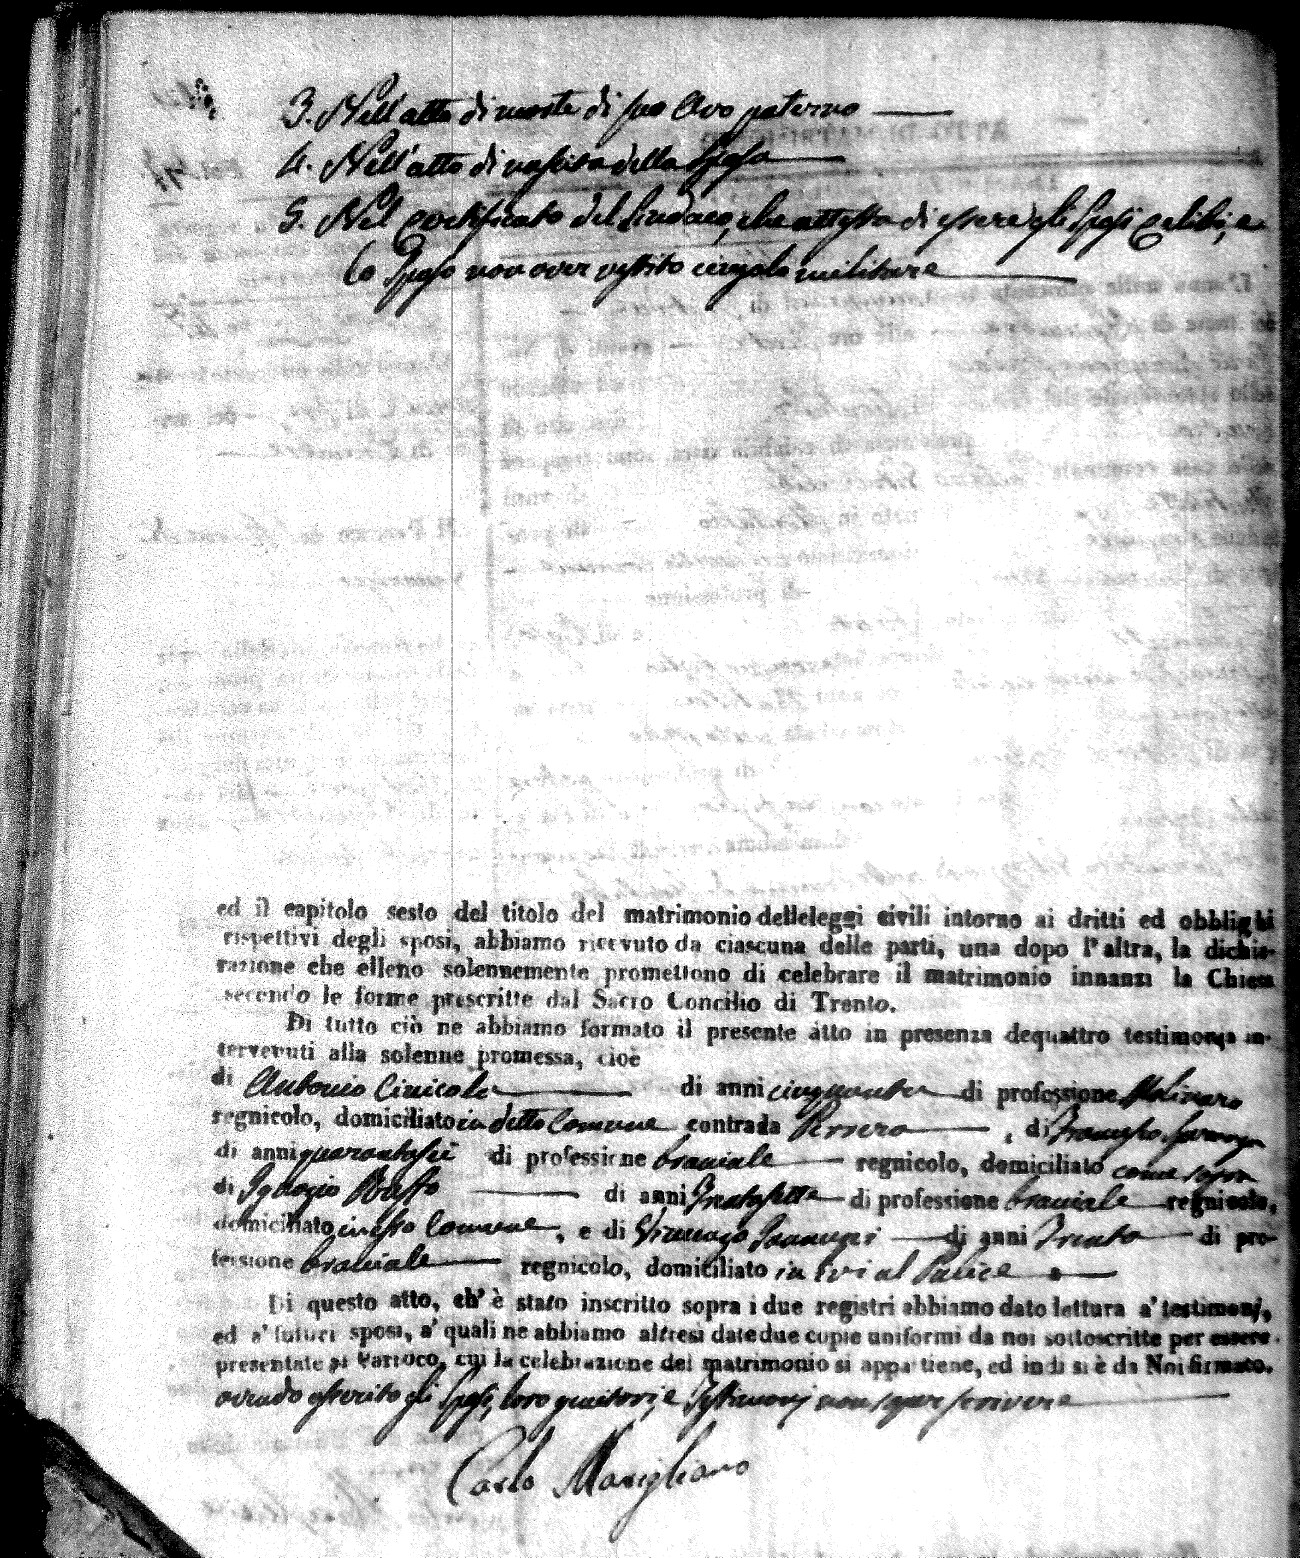 3. Nell'atto di morte di suo Avo paterno
4. Nell'atto di nascita della Sposa
5. Nel certificato del Sindaco, che attesta di essere gli Sposi celibi, e
lo Sposo non aver vestito cingolo militare
ed il capitolo sesto del titolo del matrimonio delleleggi civili intorno ai dritti ed obblighi
rispettivi degli sposi, abbiamo ricevuto da ciascuna delle parti, una dopo l'altra, la dichia-
razione che elleno solennemente promettono di celebrare il matrimonio innanzi la Chiesa
secondo le forme prescritte dal Sacro Concilio di Trento.
Di tutto ciò ne abbiamo formato il presente atto in presenza dequattro testimonja in-
tervenuti alla solenne promessa, cioè
di Antonio di anni cinquanta di professione Molinaro
regnicolo, domiciliato in detto Comune contrada , di
di anni quarantasei di professione bracciale regnicolo, domiciliato come sopra
di Ignazio di anni di professione bracciale regnicolo,
domiciliato in esso Comune, e di di anni Trenta di pro-
fessione bracciale regnicolo, domiciliato in
Di questo atto, ch'è stato inscritto sopra i due registri abbiamo dato lettura a' testimonj,
ed a' futuri sposi, a' quali ne abbiamo altresì datedue copie uniformi da noi sottoscritte per essere
presentate al Parroco, cui la celebrazione del matrimonio si appartiene, ed indi si è da Noi firmato.
avendo asserito gli Sposi, loro genitori, e Testimonj non saper scrivere
Carlo Marigliano